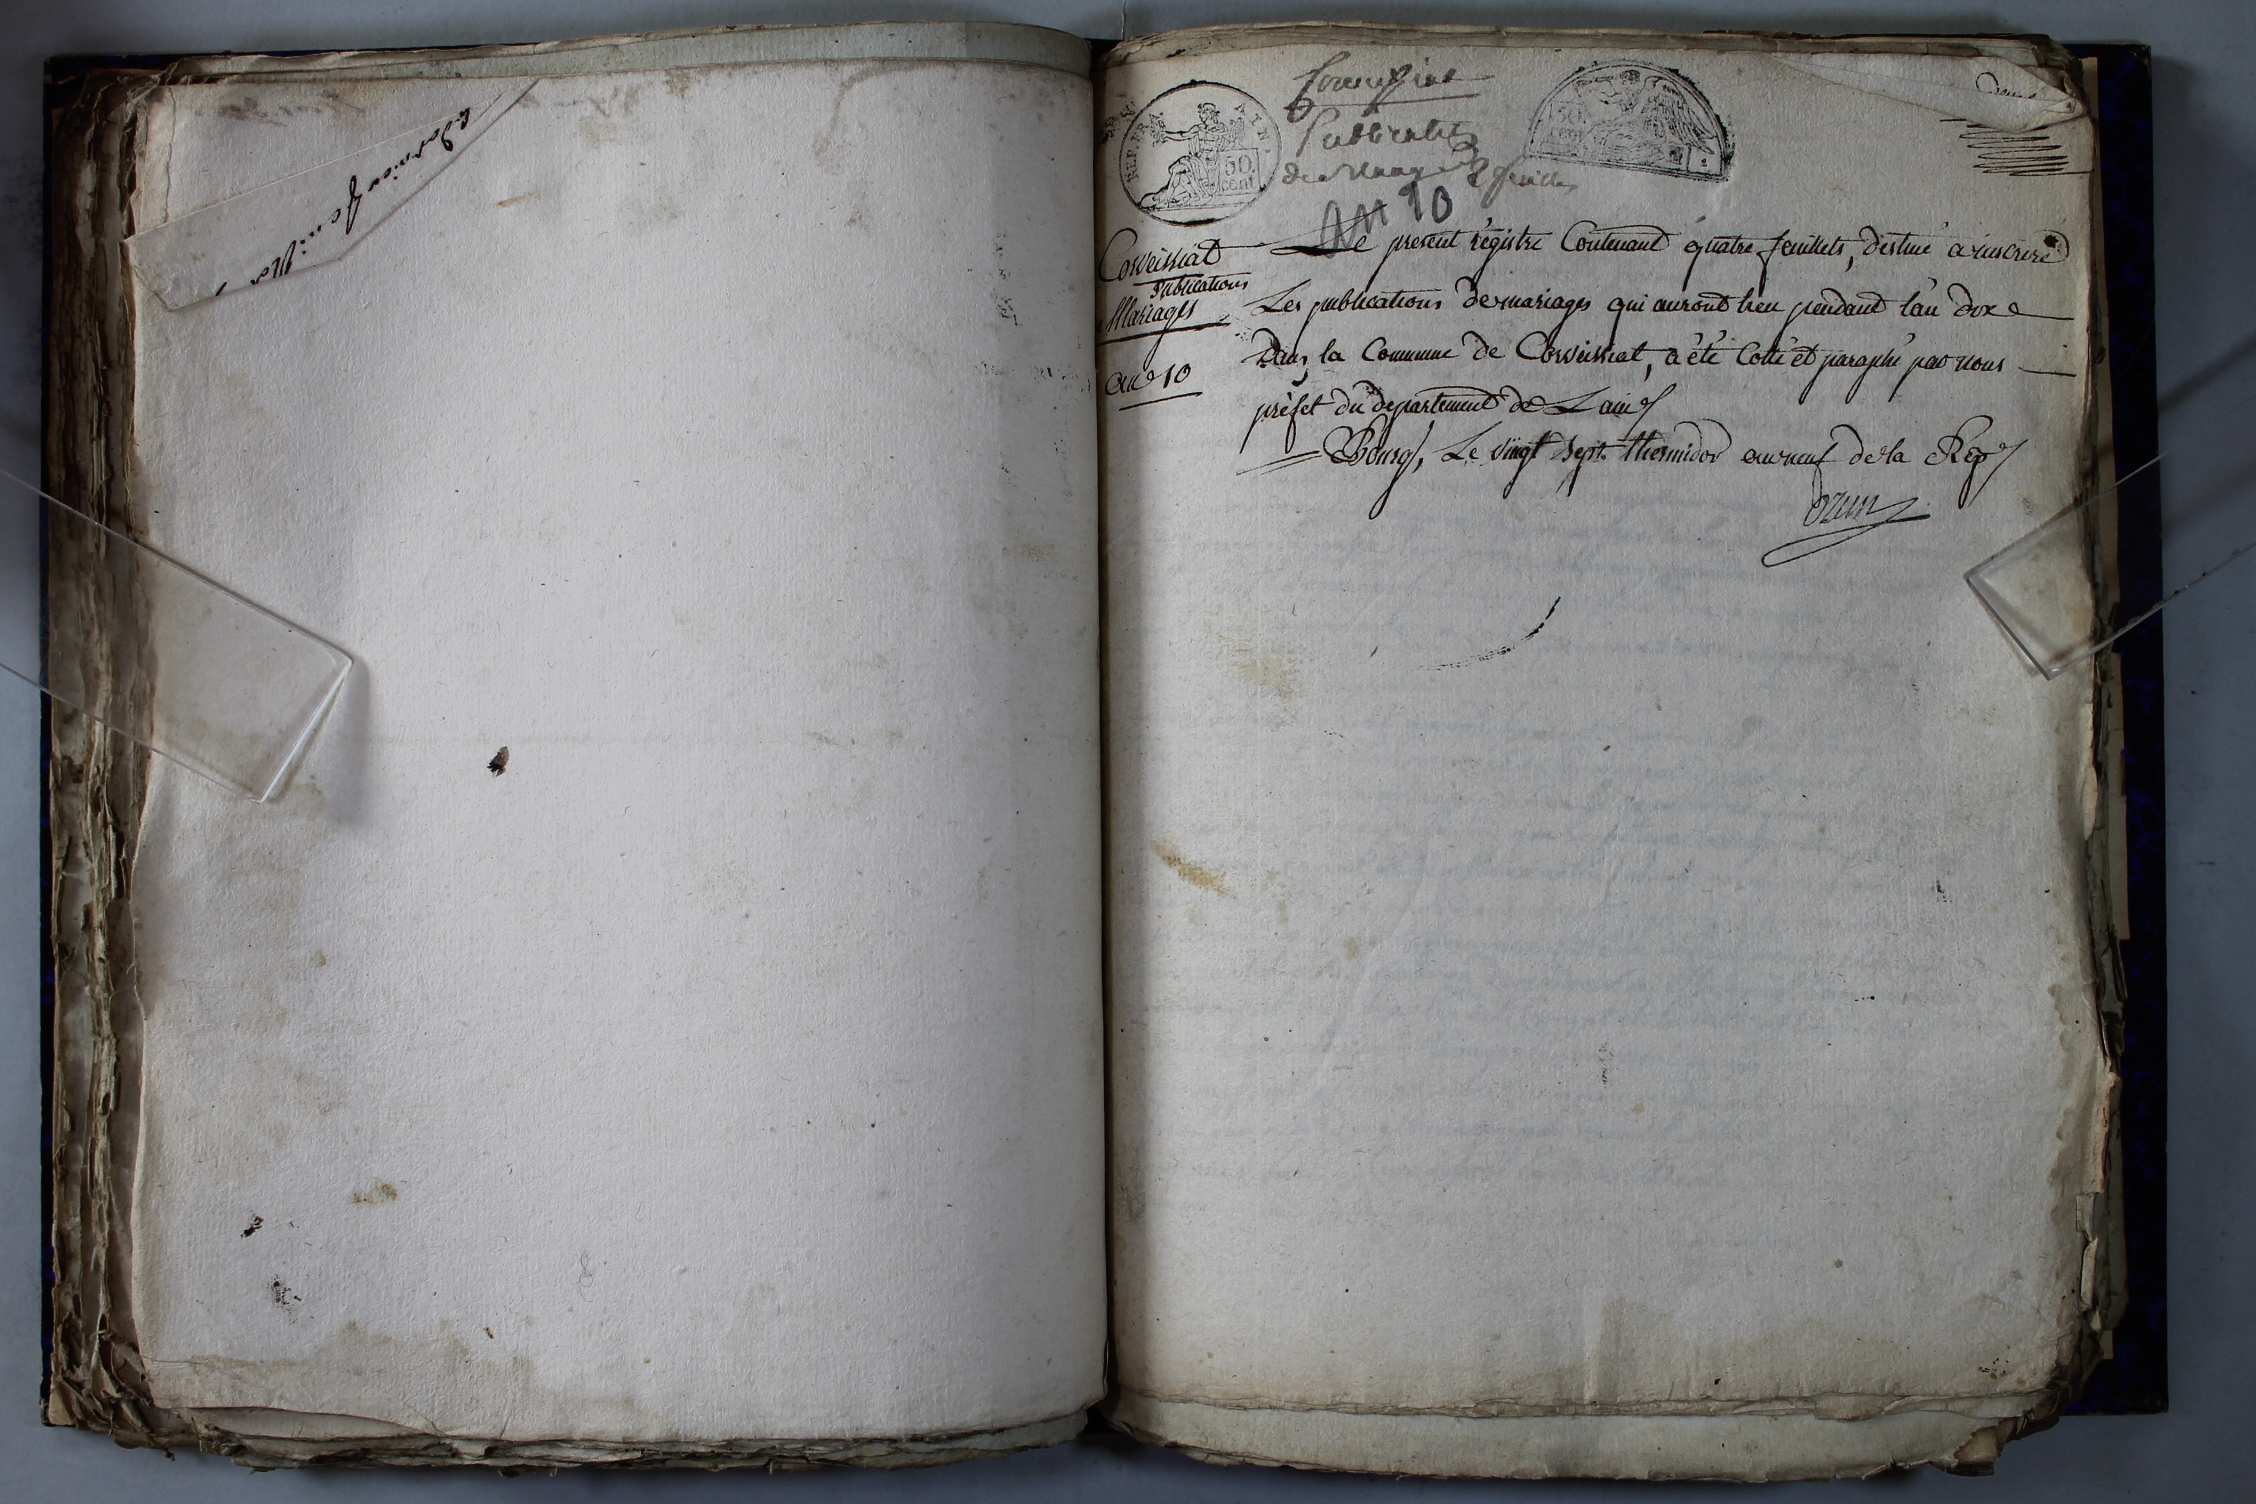 & dernier feuillet
REP. FRA.
50
cent
50
cent
Corveissiat
Publications
de Mariages 2 feuilles
AN 10
Corveissiat
Publications
Mariages
an 10
Le present régistre Contenant quatre feuillets, destiné à inscrire
Les publications de mariages qui auront lieu pendant l'an dix
Dans la Commune de Corveissiat, a été Cotté et paraphé par nous
préfet du département de L'ain
Bourg, Le vingt sept thermidor an neuf de la Rep
ozun